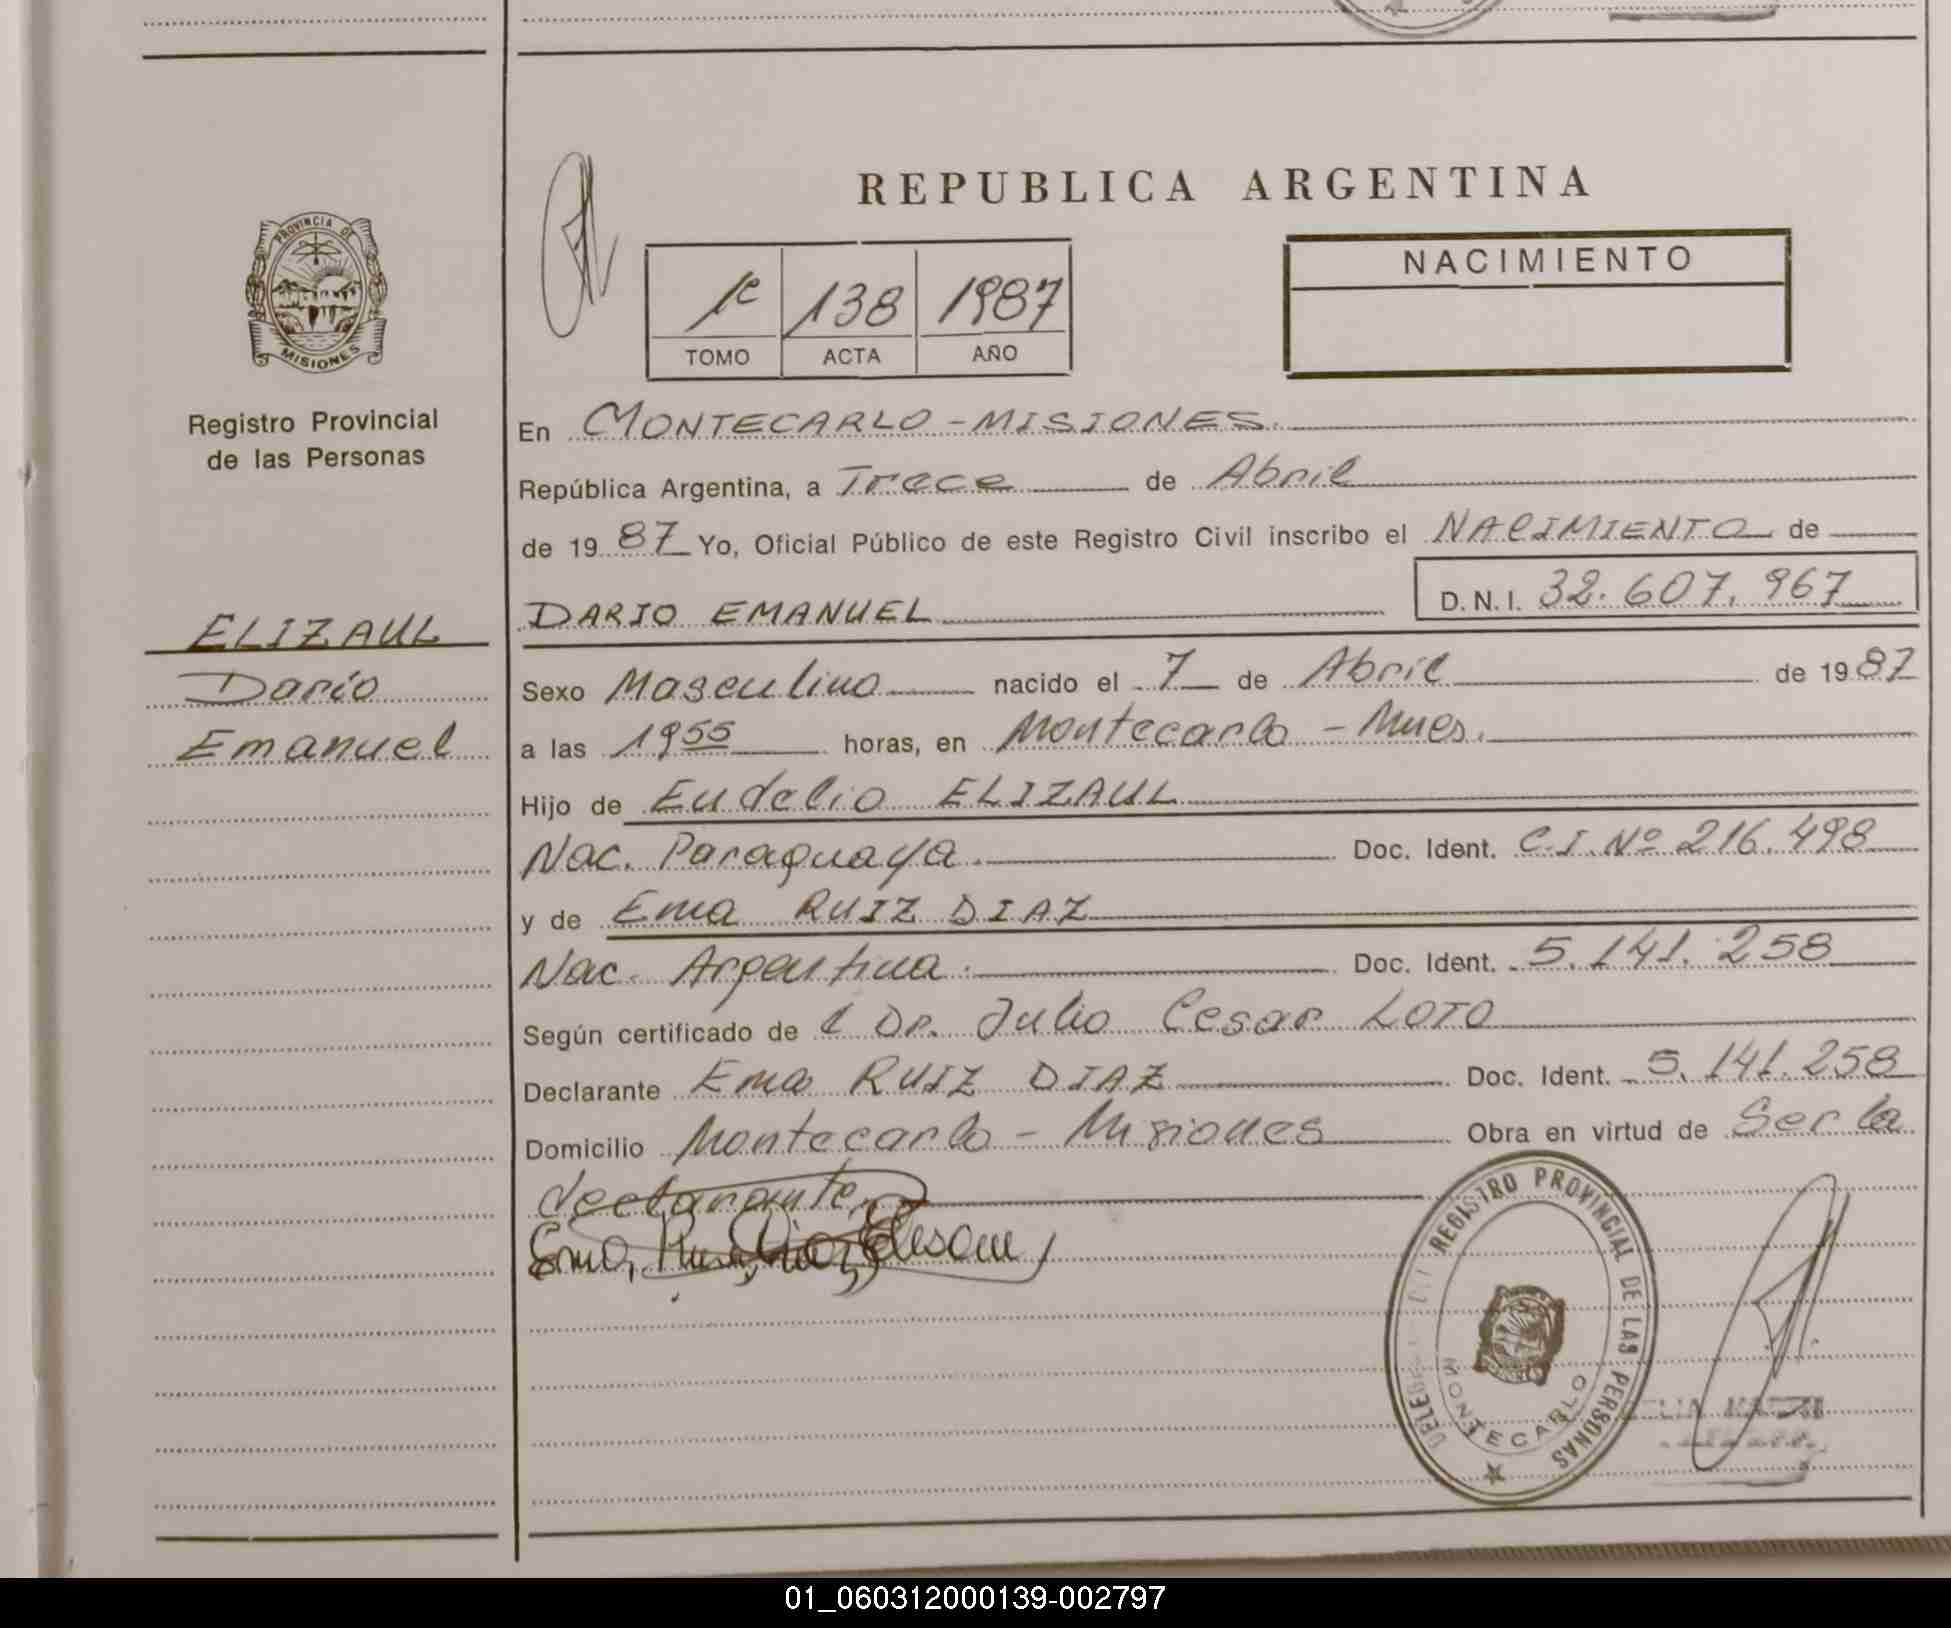 REPUBLICA ARGENTINA
PROVINCIA DE
MISIONES
Registro Provincial
de las Personas
1º 138 1987
TOMO ACTA AÑO
NACIMIENTO
En MONTECARLO - MISIONES.
República Argentina, a Trece de Abril
de 1987 Yo, Oficial Público de este Registro Civil inscribo el NACIMIENTO de
DARIO EMANUEL D.N.I. 32.607.967
ELIZAUL
Darío
Emanuel
Sexo Masculino nacido el 7 de Abril de 1987
a las 1955 horas, en Montecarlo - Mnes.
Hijo de Eudelio ELIZAUL
Nac. Paraguaya. Doc. Ident. C.I. Nº 216.498
y de Ema RUIZ DIAZ
Nac. Argentina. Doc. Ident. 5.141.258
Según certificado de l Dr. Julio Cesar LOTO
Declarante Ema RUIZ DIAZ Doc. Ident. 5.141.258
Domicilio Montecarlo - Misiones Obra en virtud de Ser la
declarante.
Ema, Ruiz
REGISTRO PROVINCIAL DE LAS PERSONAS
MONTECARLO
01_060312000139-002797